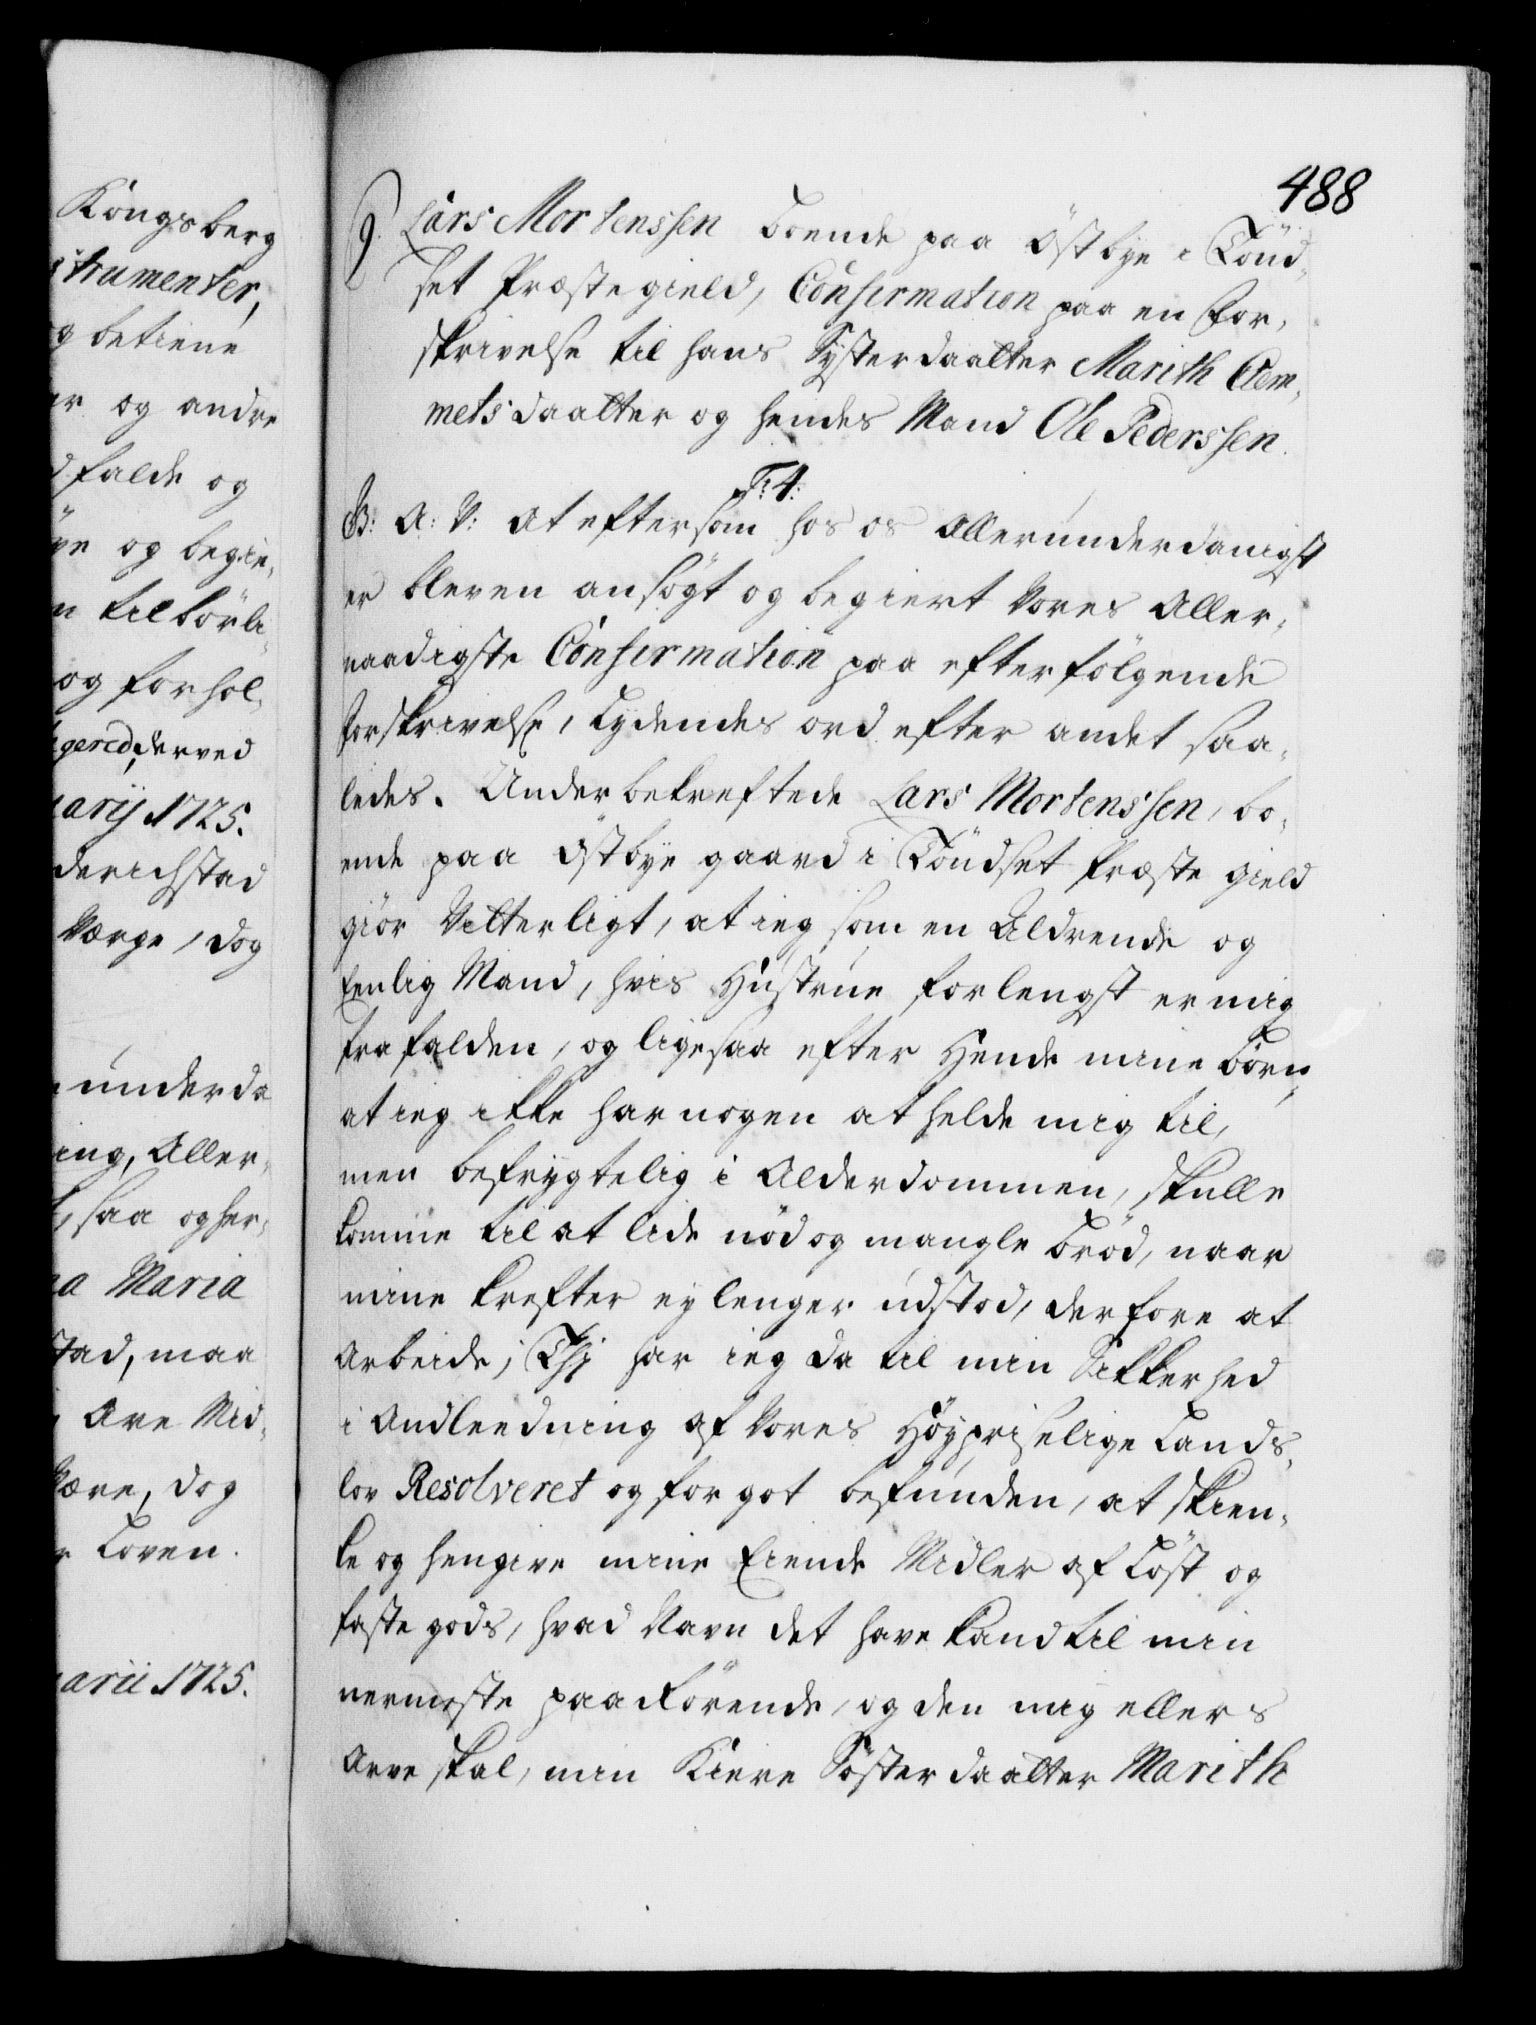 Kongsberg
strumenter,
g betiene
er og andre
d falde og
ye og begie,
n tilbörli,
og forhol,
gered, derved
uarij 1725.
derichstad
Værge, dog
underda
ing, Aller,
saa og her,
na Maria
stad, maa
Are Mid,
være, dog
Loven.
uarii 1725.
488
9. Lars Mortenssen boende paa Östbye i Töüd,
set Præstegield, Confirmation paa en For,
skrivelse til hans Systerdaatter Marith Clem,
metsdaatter og hendes Mand Ole Pederssen.
Fr: 4:
G: A: V: at eftersom hos os Allerunderdanigst
er bleven ansögt og begiert Vores Aller,
naadigste Confirmation paa efterfölgende
forskrivelse, Lydendes ord efter andet saa,
ledes. Underbekreftede Lars Mortenssen, bo,
ende paa Östbye gaard i Töüdset Præste gield
giör Vitterligt, at ieg som en Aldrende og
Eenlig Mand, hvis Hustrue forlengst er mig
frafalden, og ligesaa efter Hende mine börn,
at ieg ikke har nogen at helde mig til,
men befrygtelig i Alderdommen, skulle
komme til at lide nöd og mangle bröd, naar
mine krefter ey lenger udstod, derfore at
Arbeide; Thj har ieg da til min Sikkerhed
i Andleedning af Vores Höypriselige Lands,
lov Resolveret og for got befunden, at skien,
ke og hengive mine Eiende Midler af Löst og
faste gods, hvad Navn det have kand til min
nermeste paarörende, og den mig ellers
Arve skal, min Kiere Söster daatter Marith